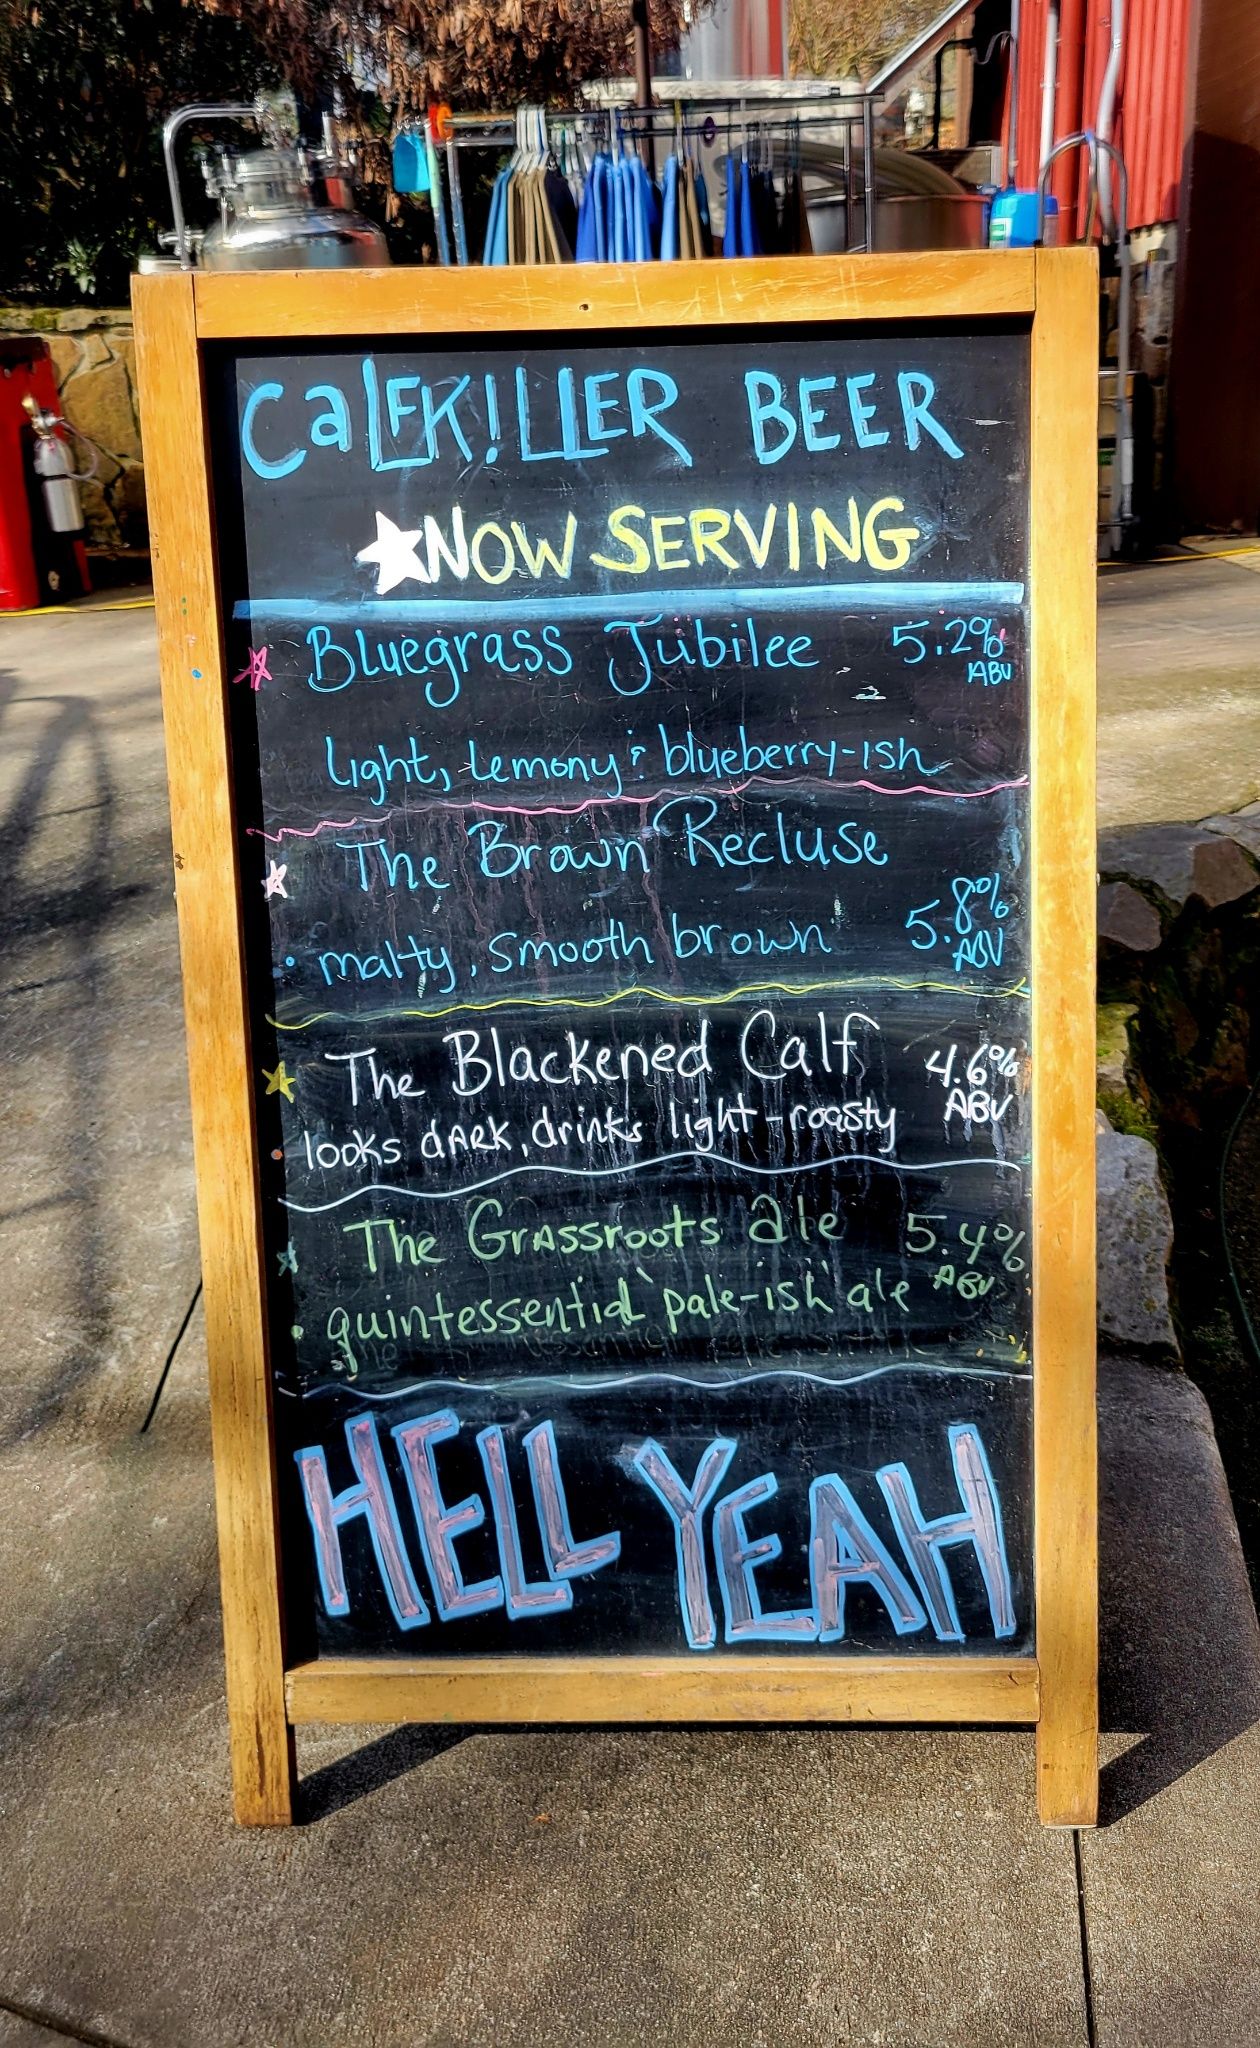 CaLFK!LLER BEER
NOW SERVING
Bluegrass Jubilee 5.2%
ABV
light, lemony & blueberry-ish
The Brown Recluse
malty, smooth brown 5.8%
ABV
The Blackened Calf 4.6%
ABV
looks dARK, drinks light-roasty
The Grassroots Ale 5.4%
ABV
quintessential pale-ish ale
HELL YEAH